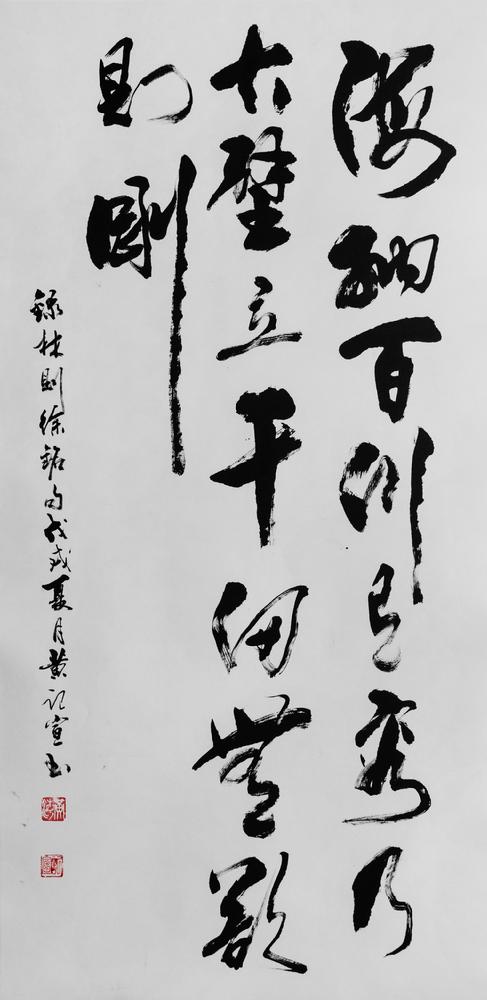 海納百川有容乃
大壁立千仞無欲
則剛
錄林則徐銘句戊戌夏月黃記宣書